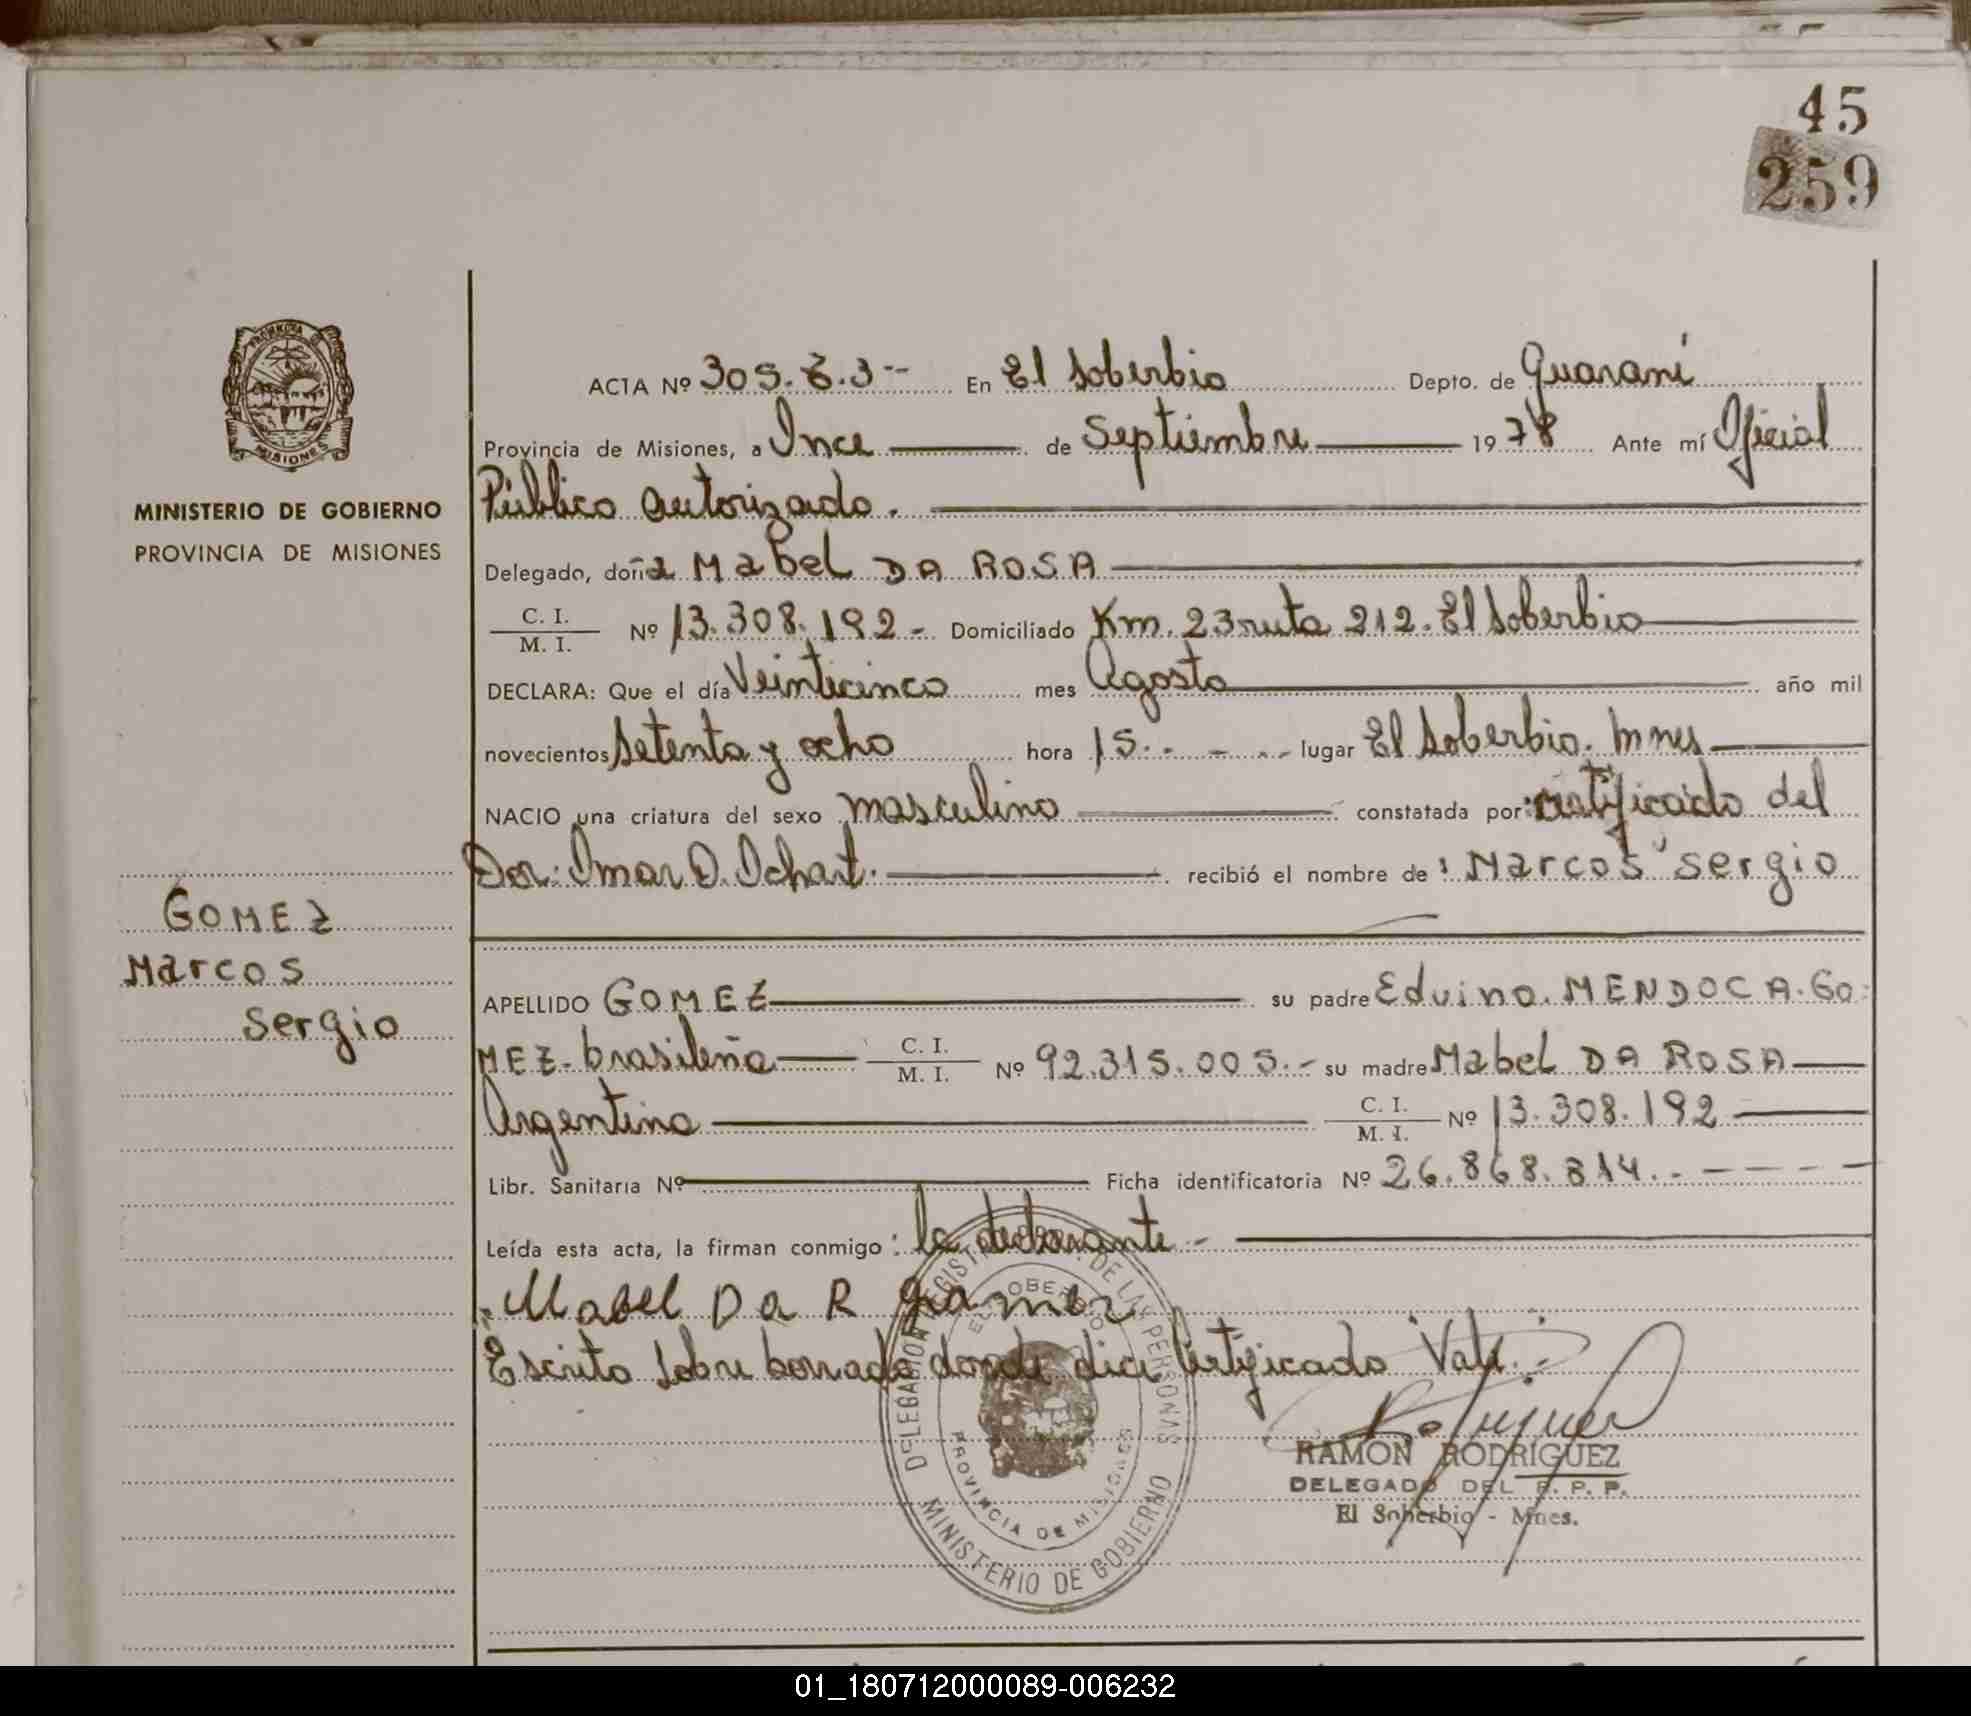 45
259
ACTA Nº 305. Z. 3-- En El Soberbio Depto. de Guaraní
Provincia de Misiones, a Once de Septiembre 1978 Ante mí Oficial
MINISTERIO DE GOBIERNO
PROVINCIA DE MISIONES
Público autorizado.
Delegado, doña Mabel DA ROSA
C. I.
M. I.
Nº 13.308.192- Domiciliado Km. 23 ruta 212. El Soberbio
DECLARA: Que el día Veinticinco mes Agosto año mil
novecientos Setenta y ocho hora 15.- - - lugar El Soberbio. Mnes
NACIO una criatura del sexo masculino constatada por: certificado del
Dor: Omar O. Ochart. recibió el nombre de: Marcos Sergio
GOMEZ
Marcos
Sergio
APELLIDO GOMEZ su padre Edvino. MENDOCA. GO
MEZ. brasileña C. I.
M. I. Nº 92.315.005.- su madre Mabel DA ROSA
Argentina C. I.
M. I. Nº 13.308.192
Libr. Sanitaria Nº Ficha identificatoria Nº 26.868.814.- - - - -
Leída esta acta, la firman conmigo: la declarante-
Mabel Da R
Escrito sobre borrado donde dice Certificado Vale.-
RAMON RODRIGUEZ
DELEGADO DEL R. P. P.
El Soberbio - Mnes.
DELEGACION REGISTRO DE LAS PERSONAS
EL SOBERBIO
PROVINCIA DE MISIONES
MINISTERIO DE GOBIERNO
01_180712000089-006232